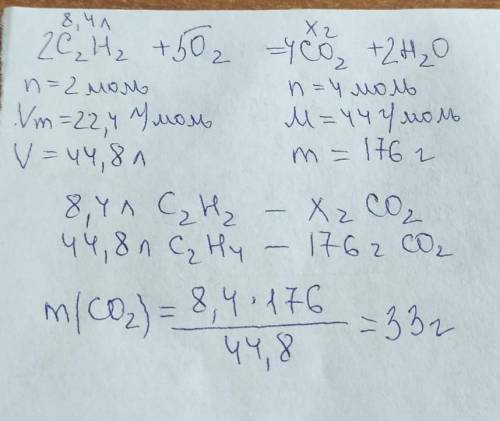 8,4 л X г
2C₂H₂ + 5O₂ = 4CO₂ + 2H₂O
n = 2 моль n = 4 моль
Vm = 22,4 л/моль M = 44 г/моль
V = 44,8 л m = 176 г
8,4 л C₂H₂ – X г CO₂
44,8 л C₂H₄ – 176 г CO₂
m(CO₂) = 8,4 · 176 / 44,8 = 33 г